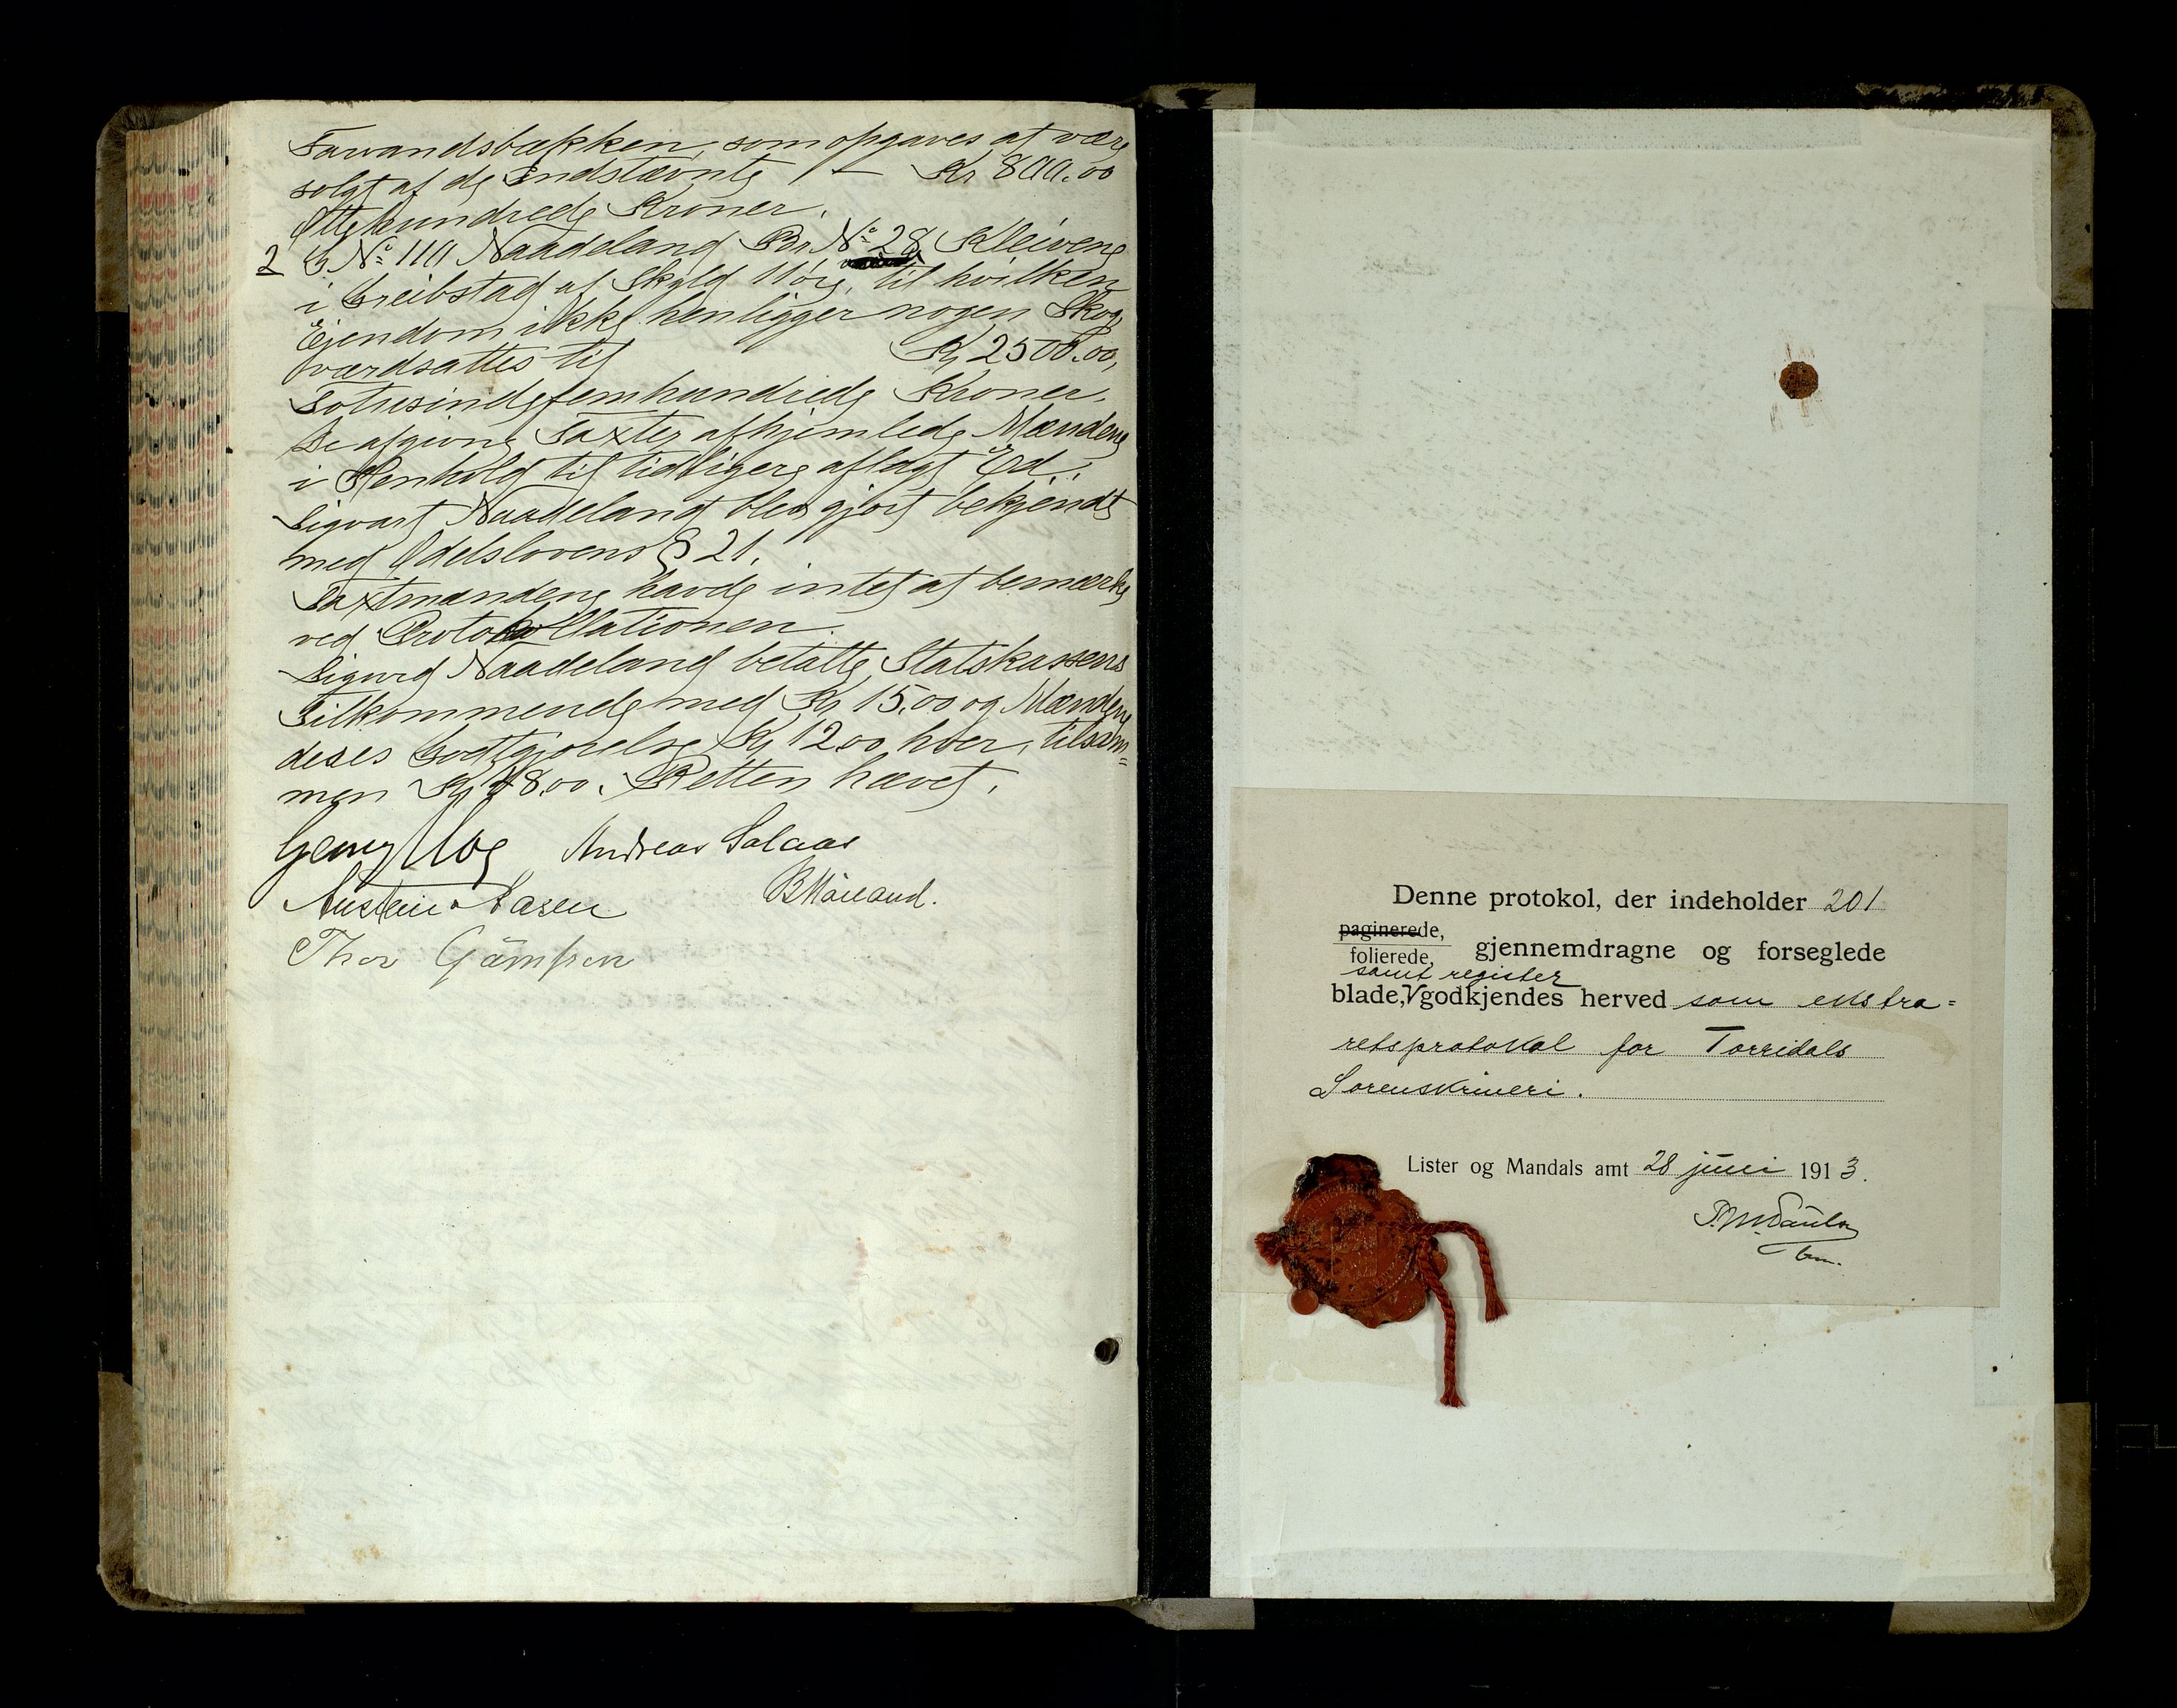 som opgaves at være
solgt af de Indstævnte Kr 800.00
Ottehundrede Kroner.
2 G No 110 Naadeland Br. No 28 Kleivene
i Greibstad af Skyld 11 øre, til hvilken
Ejendom ikke henligger nogen Skog,
værdsattes til Kr 2500.00,
Totusindefemhundrede Kroner.
De afgivne Taxter afhjemlede Mændene
i Henhold til tidligere aflagt Ed.
Sigvart Naadeland blev gjort bekjendt
med Odelslovens § 21.
Taxtmændene havde intet at bemærke
ved Protokollationen.
Sigurd Naadeland betalte Statskassens
Tilkommende med Kr 15.00 og Mændene
deres Godtgjørelse Kr 12.00 hver, tilsam=
men Kr 48.00. Retten hævet.
Andreas Salaas
Thor
Denne protokol, der indeholder 201
paginerede,
folierede, gjennemdragne og forseglede
samt register
blade, V godkjendes herved som ekstra=
retsprotokol for Torridals
Sorenskriveri.
Lister og Mandals amt 28 juni 1913.